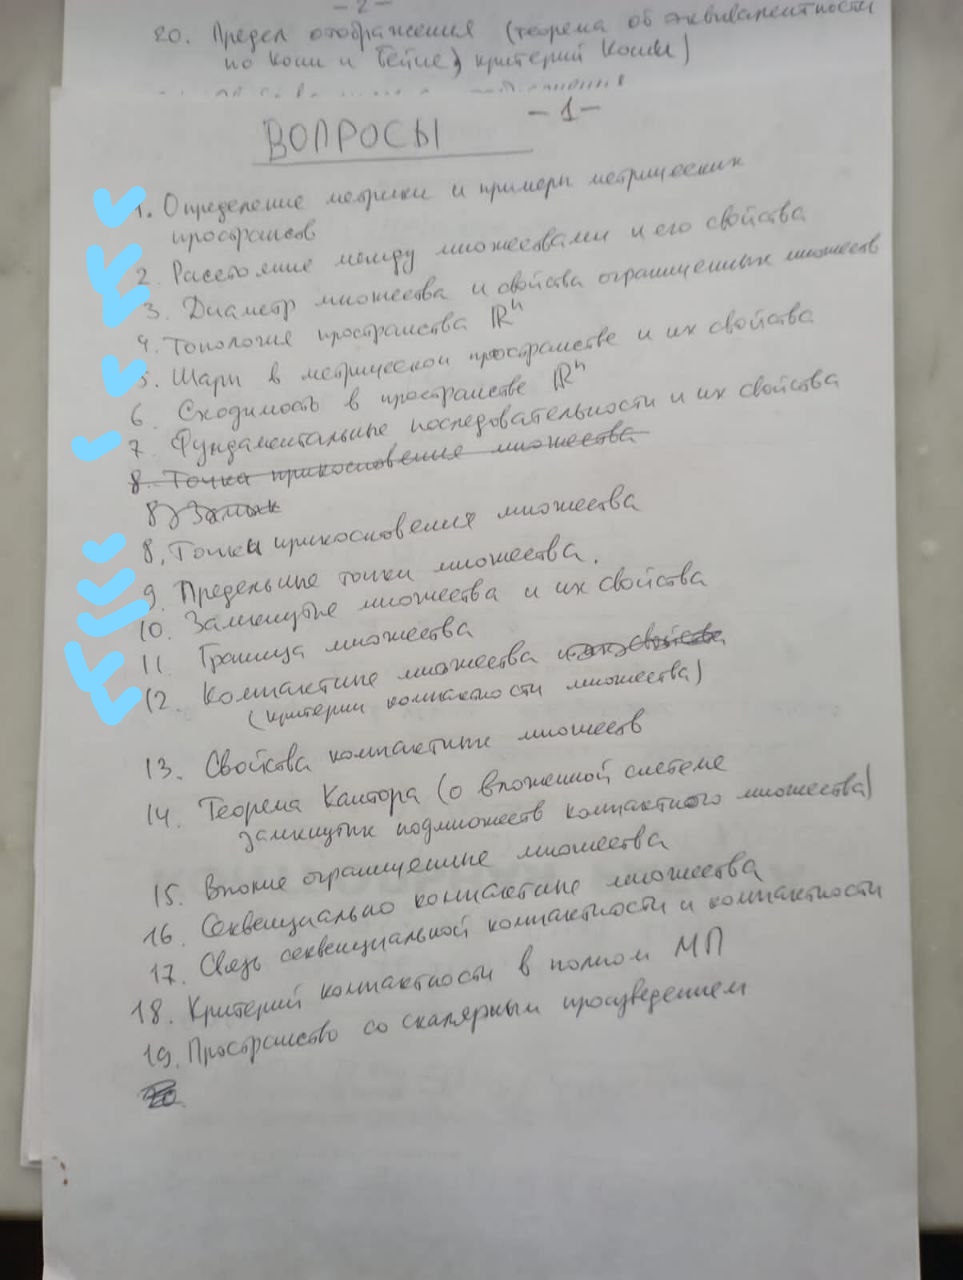 -2-
20. Предел отображения (теорема об эквивалентности
по Коши и Гейне, критерий Коши)
-1-
ВОПРОСЫ
1. Определение метрики и примеры метрических
пространств
2. Расстояние между множествами и его свойства
3. Диаметр множества и свойства ограниченных множеств
4. Топология пространства ℝⁿ
5. Шары в метрической пространстве и их свойства
6. Сходимость в пространстве ℝⁿ
7. Фундаментальные последовательности и их свойства
8. Точка прикосновение множества
8) Замык
8. Точки прикосновения множества
9. Предельные точки множества.
10. Замкнутые множества и их свойства
11. Граница множества
12. Компактные множества
(критерии компактности множества)
13. Свойства компактных множеств
14. Теорема Кантора (о вложенной системе
замкнутых подмножеств компактного множества)
15. Вполне ограниченные множества
16. Секвенциально компактные множества
17. Связь секвенциальной компактности и компактности
18. Критерий компактности в полном МП
19. Пространство со скалярным произведением
20